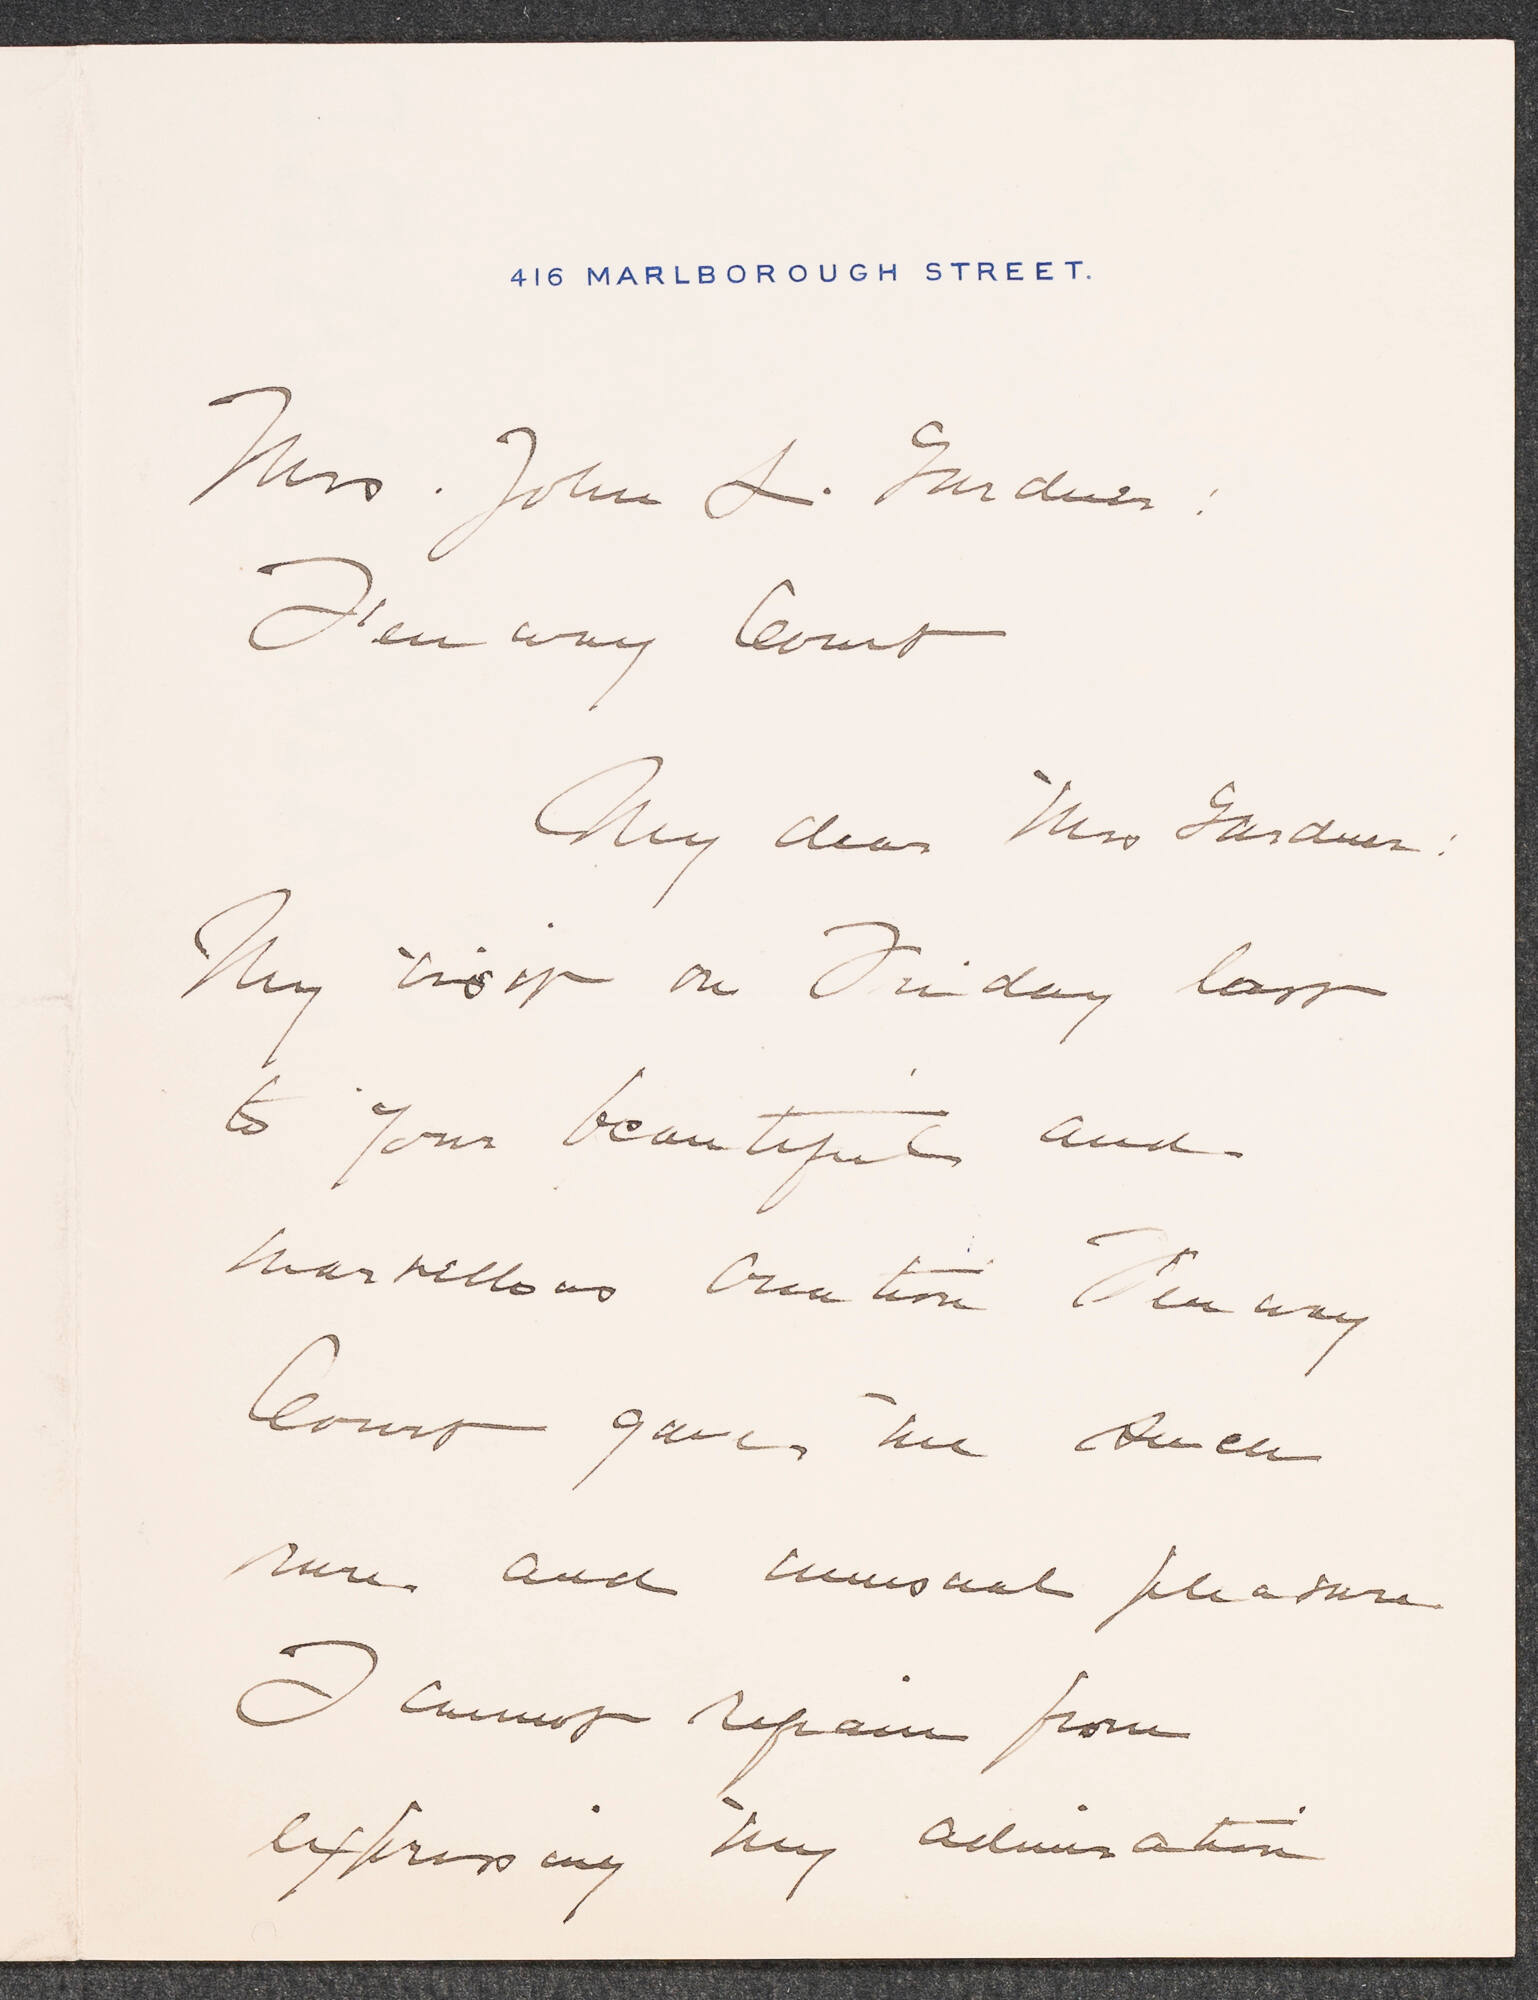 416 MARLBOROUGH STREET.
Mrs. John L. Gardner:
Fenway Court
My dear Mrs Gardner:
My visit on Friday last
to your beautiful and
marvellous creation Fenway
Court gave me such
rare and unusual pleasure
I cannot refrain from
expressing my admiration